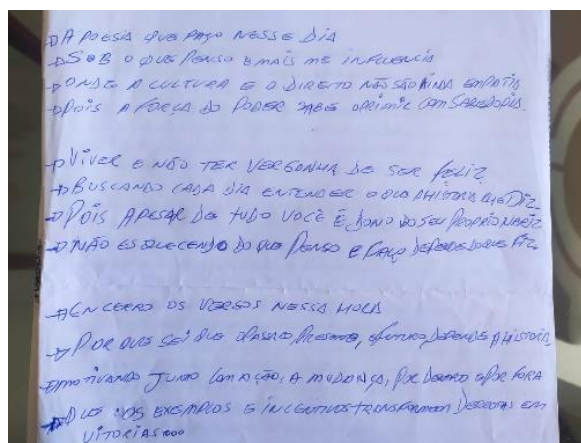 → A POESIA QUE FAÇO NESSE DIA
→ SOB O QUE PENSO E MAIS ME INFLUENCIA
→ ONDE A CULTURA E O DIREITO NÃO SÃO AINDA EMPATIA
→ POIS A FORÇA DO PODER SABE OPRIMIR COM SABEDORIA.
→ VIVER E NÃO TER VERGONHA DE SER FELIZ
→ BUSCANDO CADA DIA ENTENDER O QUE A HISTORIA DIZ
→ POIS APESAR DE TUDO VOCÊ É DONO DO SEU PROPRIO NARIZ
→ NÃO ESQUECENDO DO QUE PENSO E FAÇO DEPENDE DO QUE FIZ
→ ENCERRO OS VERSOS NESSA HORA
→ POR QUE SEI QUE O PASSADO, PRESENTE, FUTURO, DEPENDE A HISTORIA
→ MOTIVANDO JUNTO COM AÇÃO, A MUDANÇA, POR DENTRO E POR FORA
→ QUE OS EXEMPLOS E INCENTIVOS TRANSFORMAM DERROTAS EM
VITORIAS...